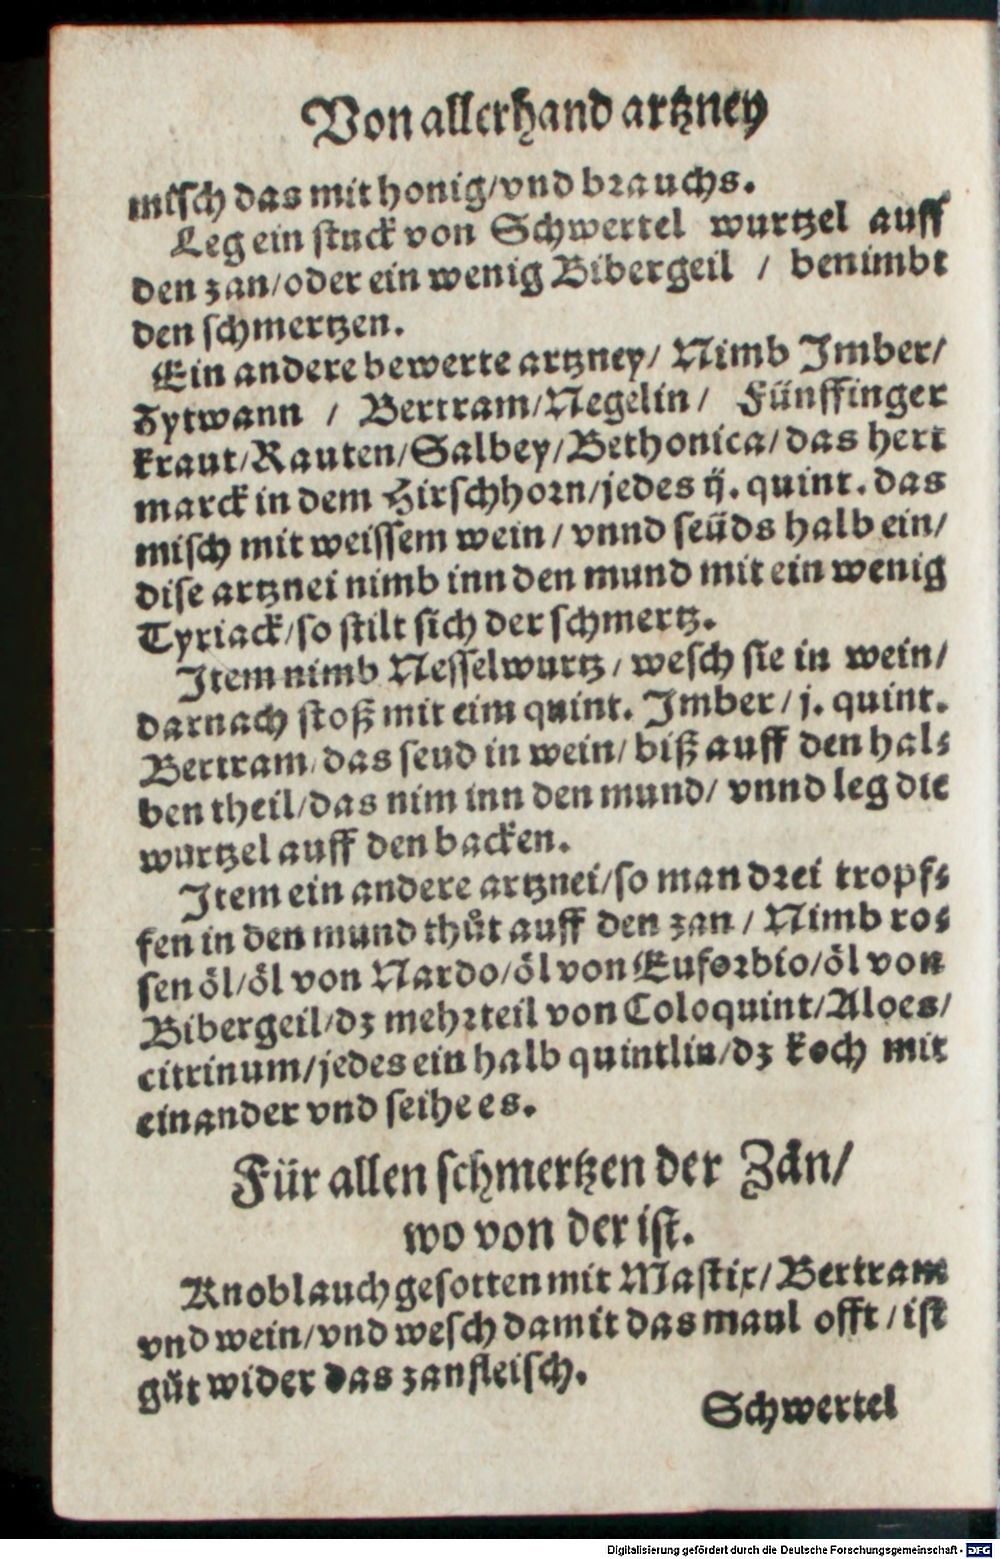 Von allerhand artzney
misch das mit honig/vnd brauchs.
Leg ein stuck von Schwertel wurtzel auff
den zan/oder ein wenig Bibergeil / benimbt
den schmertzen.
Ein andere bewerte artzney/ Nimb Imber/
Zytwann / Bertram/Negelin/ Fünffinger
kraut/Rauten/Salbey/Bethonica/das hert
marck in dem Hirschhorn/jedes ij. quint. das
misch mit weissem wein / vnnd seüds halb ein/
dise artznei nimb inn den mund mit ein wenig
Tyriack/so stilt sich der schmertz.
Item nimb Nesselwurtz / wesch sie in wein/
darnach stoß mit eim quint. Imber / j. quint.
Bertram/das seud in wein/ biß auff den hal⸗
ben theil/das nim inn den mund/ vnnd leg die
wurtzel auff den backen.
Item ein andere artznei/so man drei tropf⸗
fen in den mund thůt auff den zan / Nimb ro⸗
sen öl/öl von Nardo/öl von Euforbio/öl von
Bibergeil/dz mehrteil von Coloquint/Aloes/
citrinum/jedes ein halb quintlin/dz koch mit
einander vnd seihe es.
Für allen schmertzen der Zän/
wo von der ist.
Knoblauch gesotten mit Mastix/ Bertram
vnd wein/vnd wesch damit das maul offt / ist
gůt wider das zanfleisch.
Schwertel
Digitalisierung gefördert durch die Deutsche Forschungsgemeinschaft - DFG